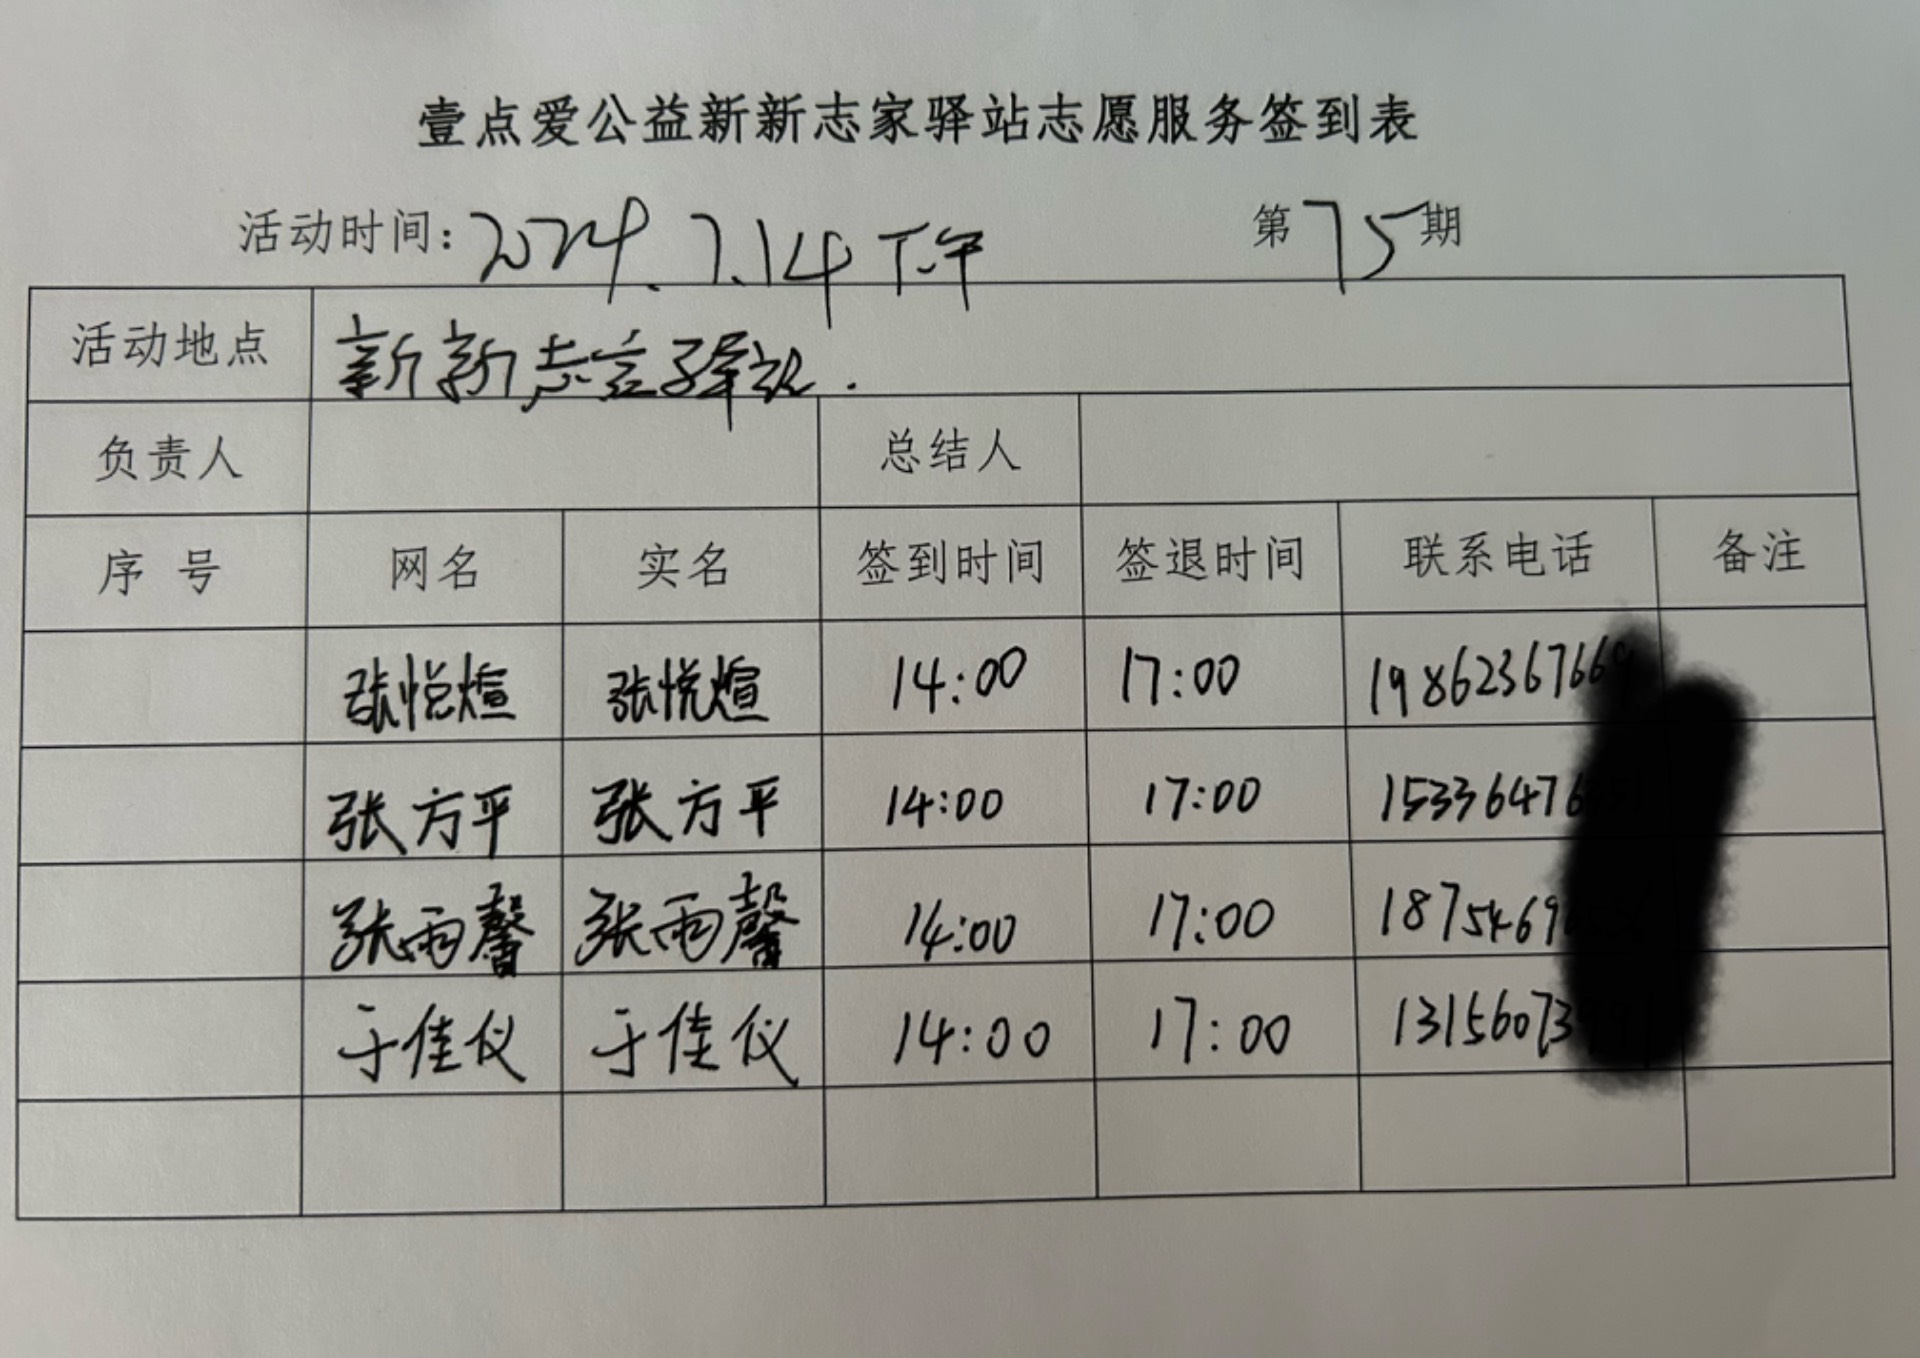 壹点爱公益新新志家驿站志愿服务签到表
活动时间：2024.7.14下午 第75期
活动地点 新新志家驿站.
负责人 总结人
序号 网名 实名 签到时间 签退时间 联系电话 备注
张悦煊 张悦煊 14:00 17:00 1986236766
张方平 张方平 14:00 17:00 15336476
张雨馨 张雨馨 14:00 17:00 1875469
于佳仪 于佳仪 14:00 17:00 13156073